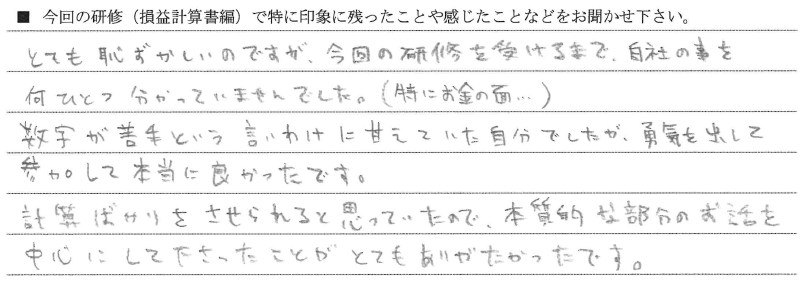 ■ 今回の研修（損益計算書編）で特に印象に残ったことや感じたことなどをお聞かせ下さい。
とても恥ずかしいのですが、今回の研修を受けるまで、自社の事を
何ひとつ分かっていませんでした。（特にお金の面…）
数字が苦手という言いわけに甘えていた自分でしたが、勇気を出して
参加して本当に良かったです。
計算ばかりをさせられると思っていたので、本質的な部分のお話を
中心にして下さったことがとてもありがたかったです。